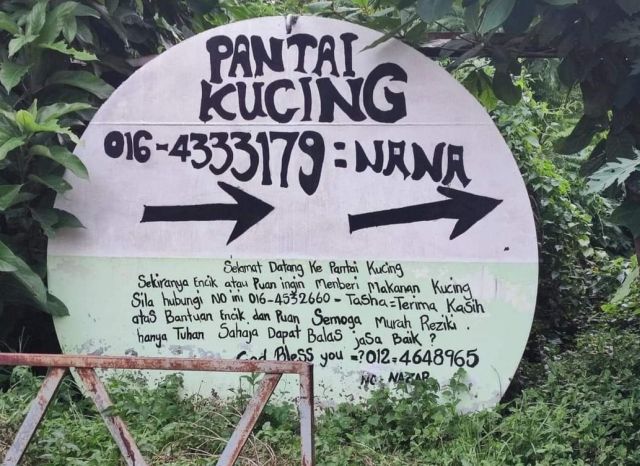 PANTAI
KUCING
016-4333179 = NANA
Selamat Datang Ke Pantai Kucing
Sekiranya Encik atau Puan ingin Menberi Makanan Kucing
Sila hubungi NO ini 016-4532660 - Tasha = Terima Kasih
atas Bantuan Encik dan Puan Semoga Murah Reziki.
hanya Tuhan Sahaja Dapat Balas jasa Baik ?
God Bless you = ? 012 = 4648965